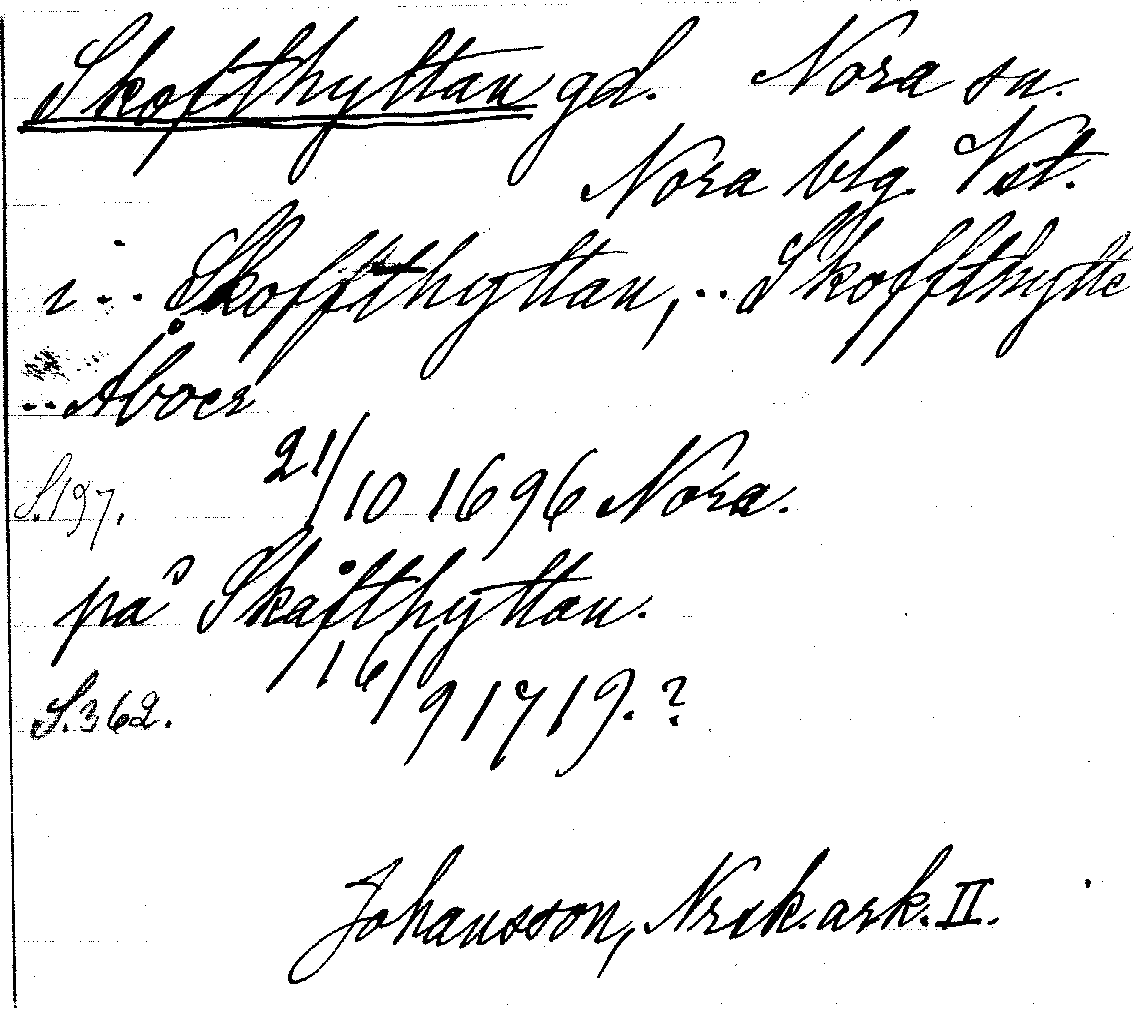 Skofthyttan gd. Nora sn.
Nora blg. Vst.
i .. Skoffthyttan, .. Skoffthytte
.. Åboer
S. 197. 21/10 1696 Nora.
på Skåfthyttan.
S. 362. 16/9 1719. ?
Johansson, Nrik. ark. II.